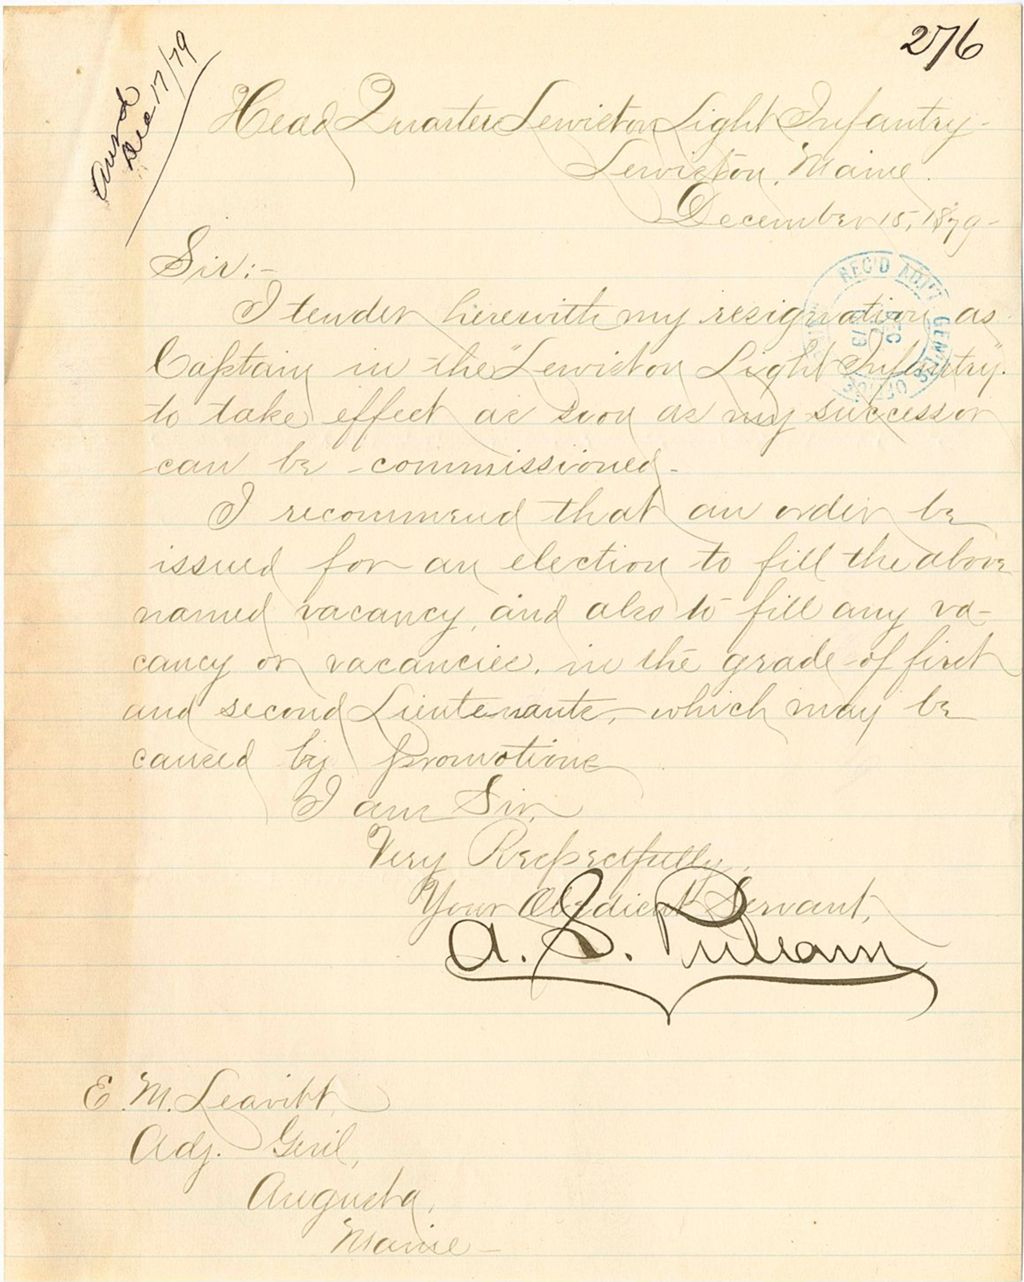 276
Ansd
Dec 17/79
Head Quarters Lewiston Light Infantry-
Lewiston, Maine.
December 15, 1879-
Sir:-
REC'D ADJ'T GEN'L'S OFFICE
DEC
I tender herewith my resignation as
Captain in the "Lewiston Light Infantry".
to take effect as soon as my successor
can be commissioned-
I recommend that an order be
issued for an election to fill the above
named vacancy, and also to fill any va-
cancy or vacancies, in the grade of first
and second Lieutenants, which may be
caused by promotions
I am Sir,
Very Respectfully,
Your Obedient Servant,
A. S. Pulsam
E. M. Leavitt,
Adj. Genl,
Augusta,
Maine-